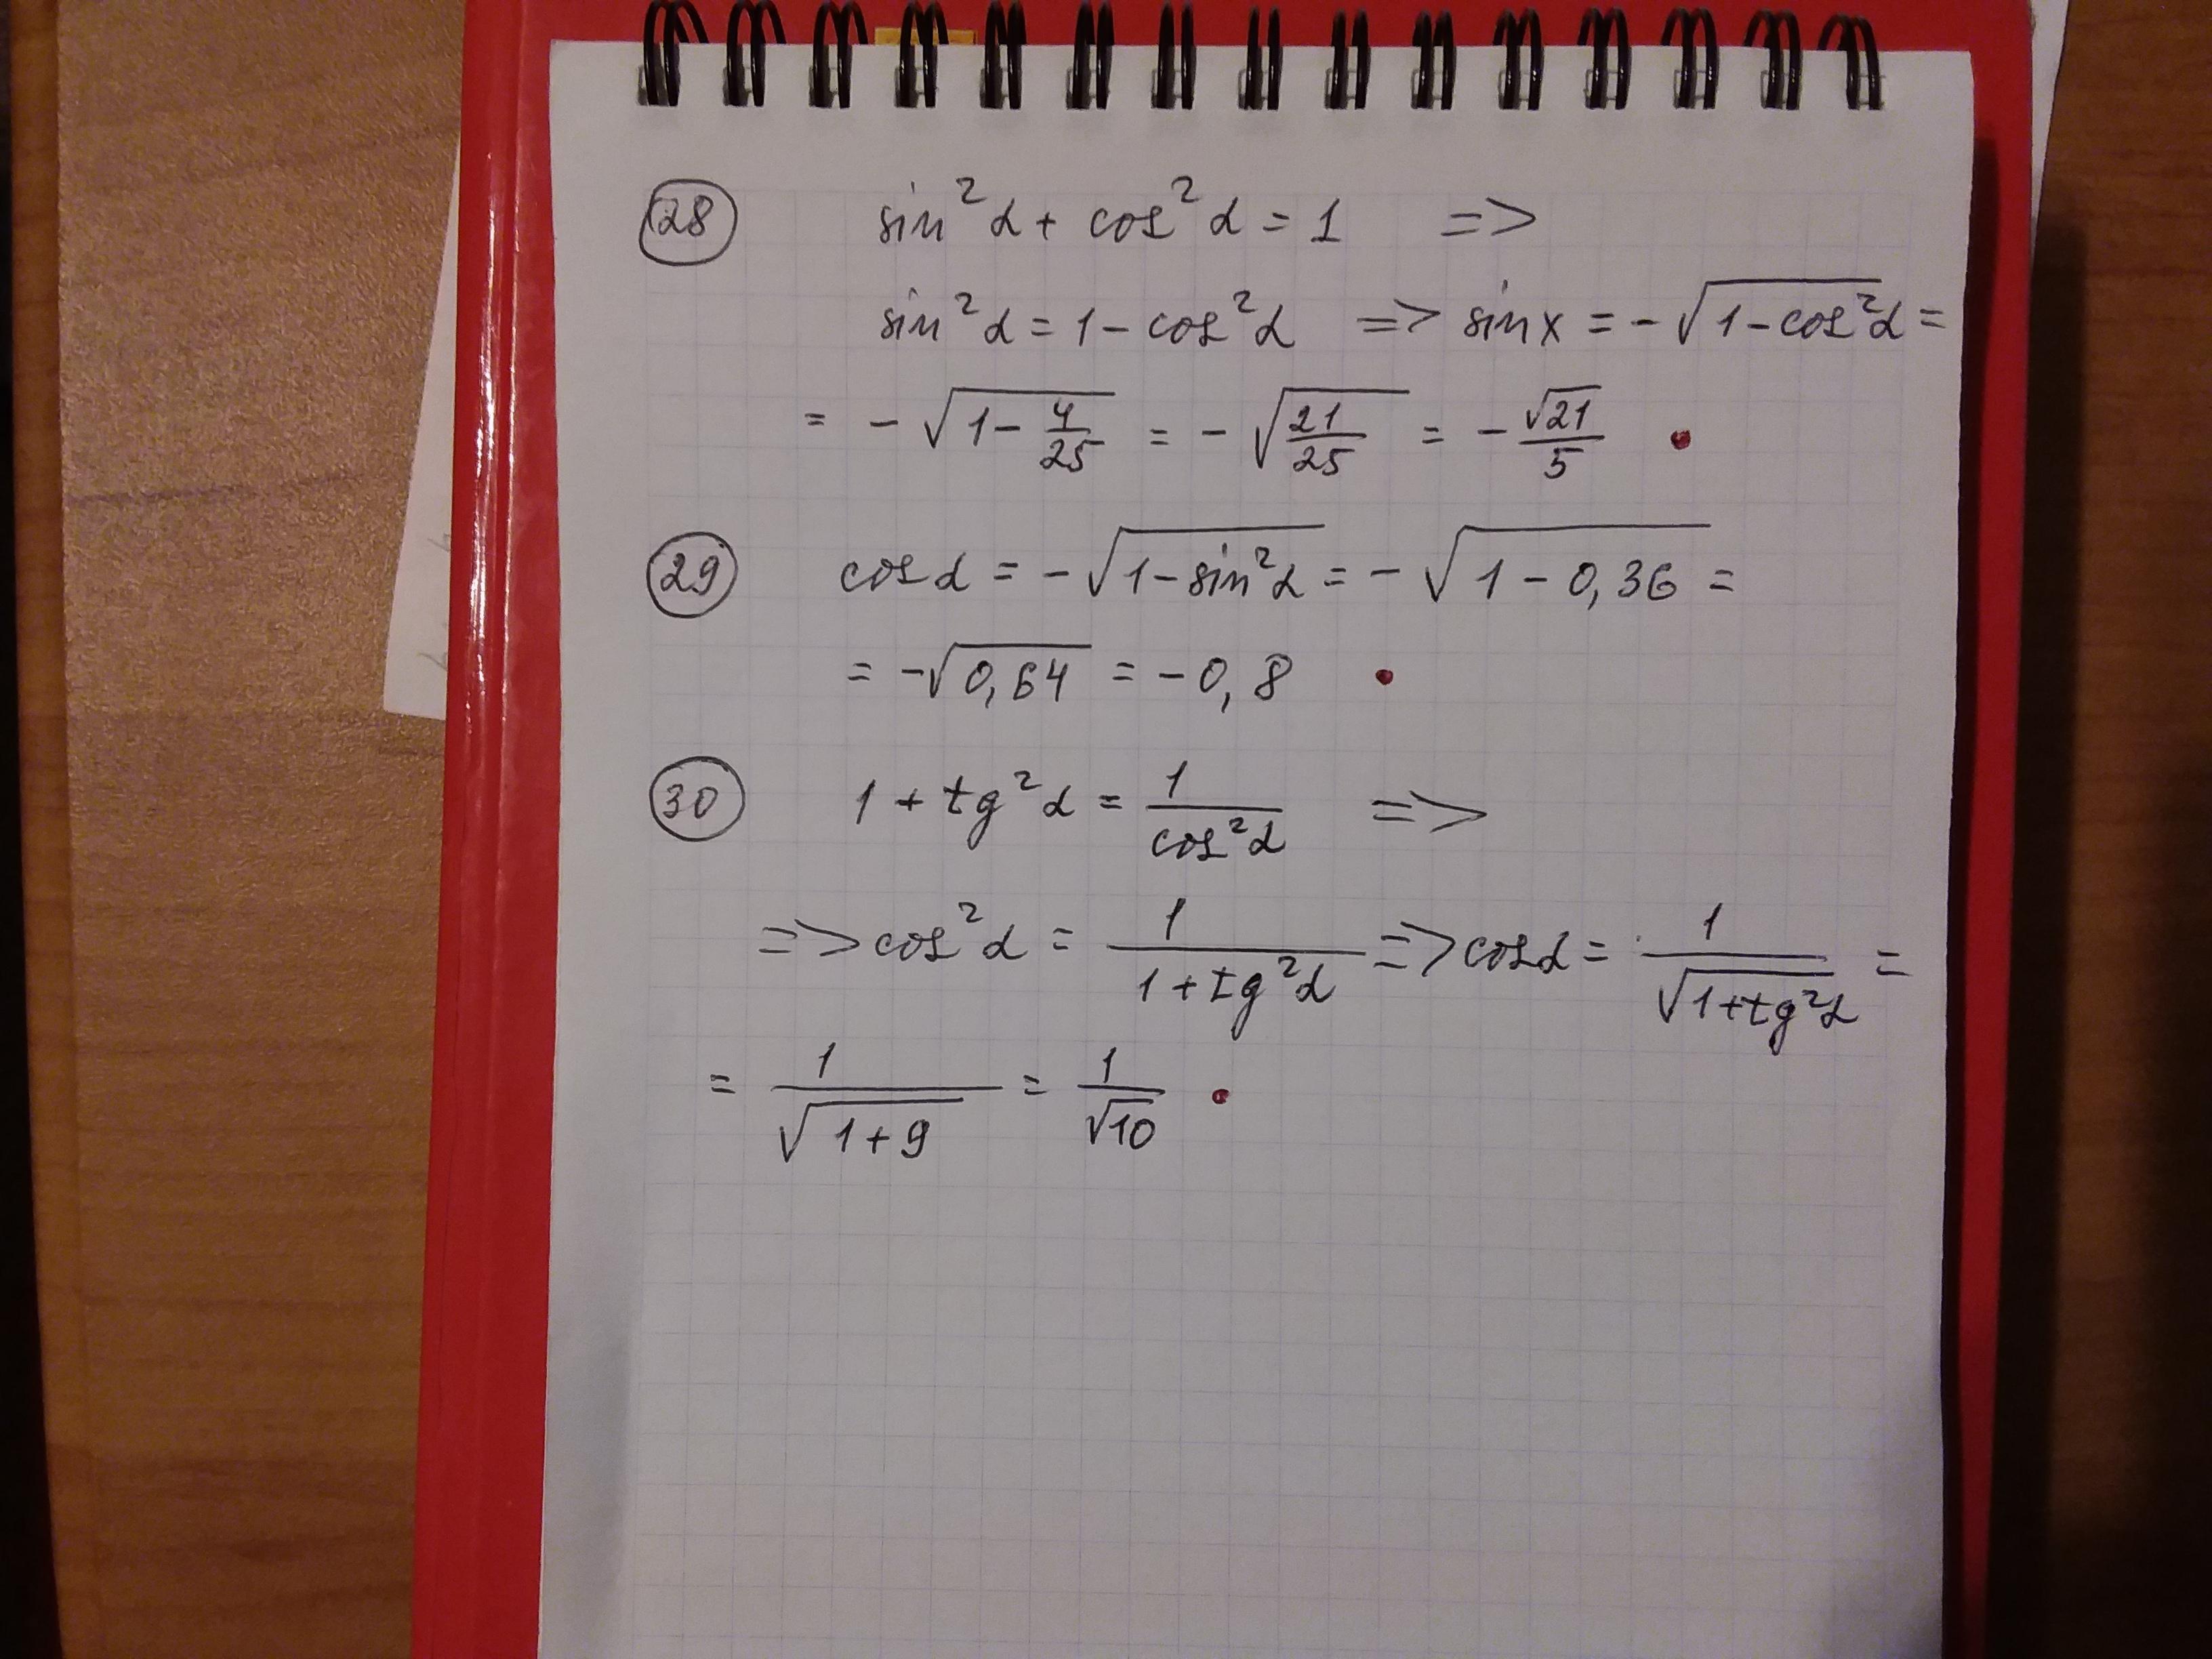 28 sin²α + cos²α = 1 =>
sin²α = 1 - cos²α => sin x = -√(1-cos²α) =
= -√(1 - 4/25) = -√(21/25) = -√21/5
29 cos α = -√(1-sin²α) = -√(1 - 0,36) =
= -√0,64 = -0,8
30 1 + tg²α = 1/cos²α =>
=> cos²α = 1/(1+tg²α) => cos α = 1/√(1+tg²α) =
= 1/√(1+9) = 1/√10